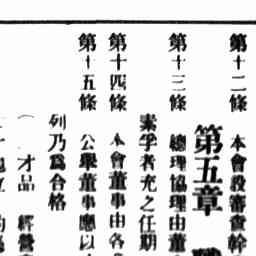 第十二條　本會設審查幹
第五章　職
第十三條　總理協理由董
素孚者充之任期
第十四條　本會董事由各
第十五條　公舉董事應以
列乃爲合格
（一）才品　經營